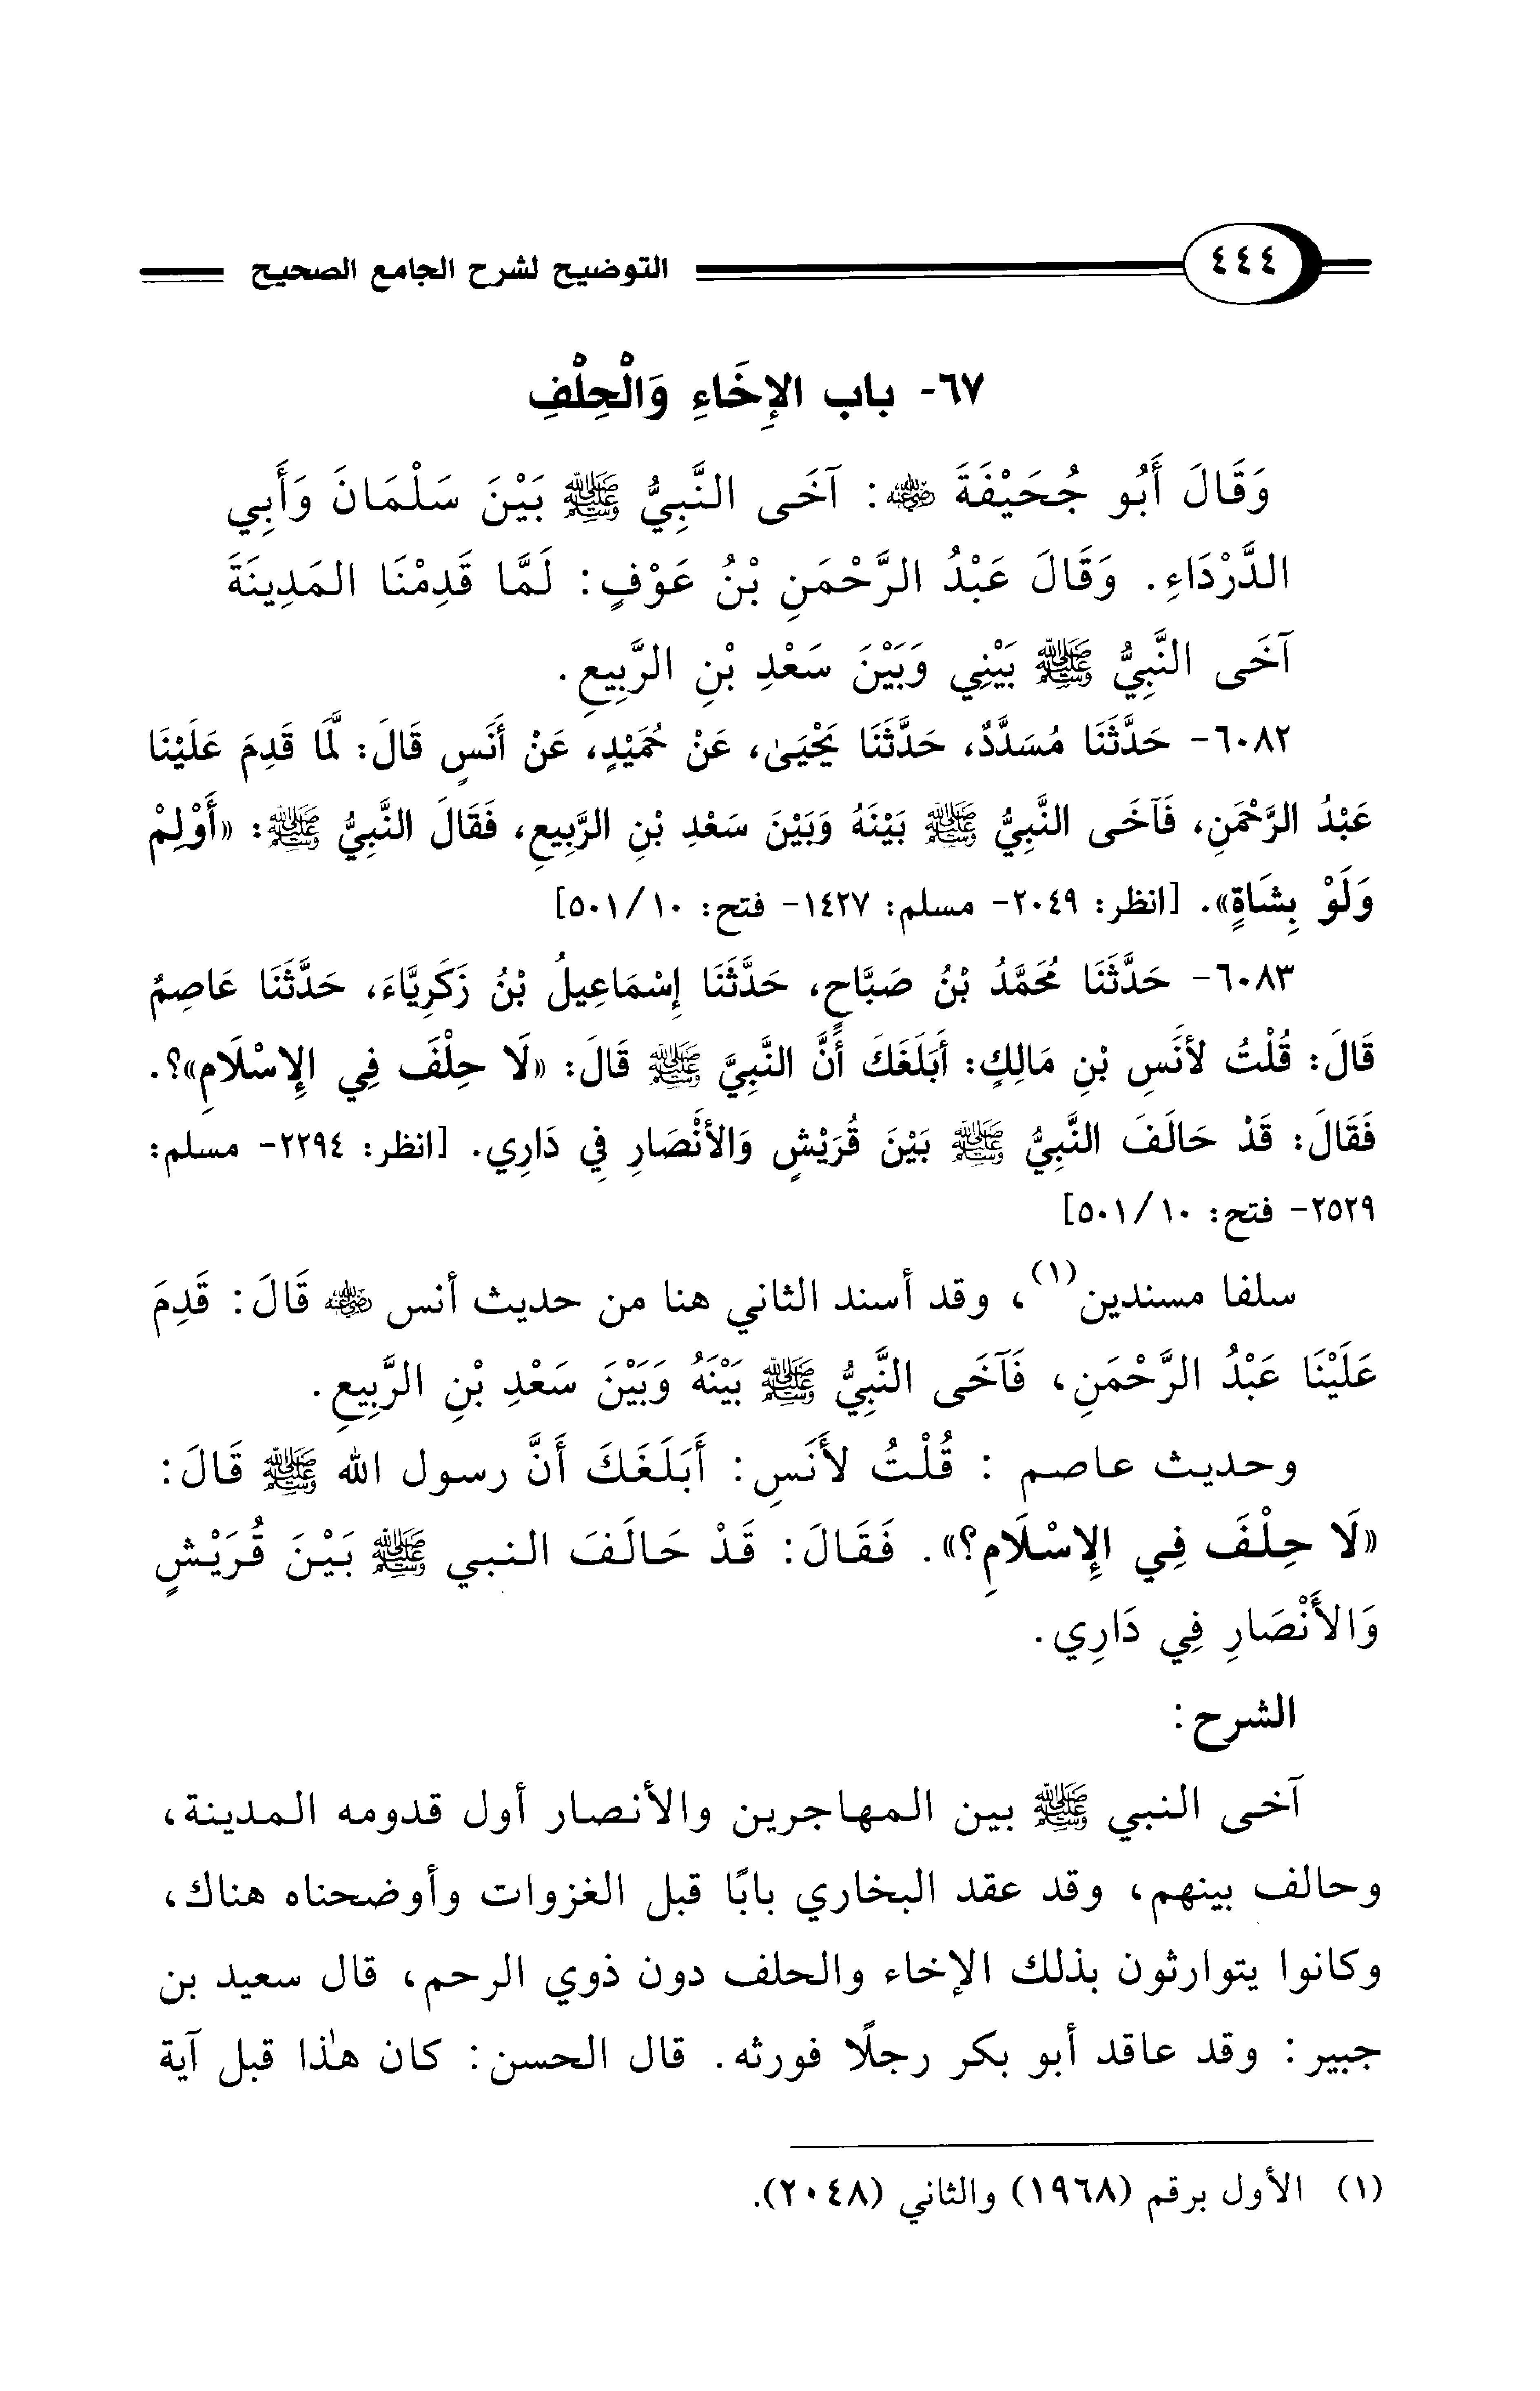 ٤٤٤ التوضيح لشرح الجامع الصحيح
٦٧- باب الإِخَاءِ وَالْحِلْفِ
وَقَالَ أَبُو جُحَيْفَةَ ﵁: آخَى النَّبِيُّ ﷺ بَيْنَ سَلْمَانَ وَأَبِي
الدَّرْدَاءِ. وَقَالَ عَبْدُ الرَّحْمَنِ بْنُ عَوْفٍ: لَمَّا قَدِمْنَا المَدِينَةَ
آخَى النَّبِيُّ ﷺ بَيْنِي وَبَيْنَ سَعْدِ بْنِ الرَّبِيعِ.
٦٠٨٢- حَدَّثَنَا مُسَدَّدٌ، حَدَّثَنَا يَحْيَىٰ، عَنْ حُمَيْدٍ، عَنْ أَنَسٍ قَالَ: لَمَّا قَدِمَ عَلَيْنَا
عَبْدُ الرَّحْمَنِ، فَآخَى النَّبِيُّ ﷺ بَيْنَهُ وَبَيْنَ سَعْدِ بْنِ الرَّبِيعِ، فَقَالَ النَّبِيُّ ﷺ: «أَوْلِمْ
وَلَوْ بِشَاةٍ». [انظر: ٢٠٤٩- مسلم: ١٤٢٧- فتح: ١٠/٥٠١]
٦٠٨٣- حَدَّثَنَا مُحَمَّدُ بْنُ صَبَّاحٍ، حَدَّثَنَا إِسْمَاعِيلُ بْنُ زَكَرِيَّاءَ، حَدَّثَنَا عَاصِمٌ
قَالَ: قُلْتُ لأَنَسِ بْنِ مَالِكٍ: أَبَلَغَكَ أَنَّ النَّبِيَّ ﷺ قَالَ: «لَا حِلْفَ فِي الإِسْلَامِ»؟.
فَقَالَ: قَدْ حَالَفَ النَّبِيُّ ﷺ بَيْنَ قُرَيْشٍ وَالأَنْصَارِ فِي دَارِي. [انظر: ٢٢٩٤- مسلم:
٢٥٢٩- فتح: ١٠/٥٠١]
سلفا مسندين(١)، وقد أسند الثاني هنا من حديث أنس ﵁ قَالَ: قَدِمَ
عَلَيْنَا عَبْدُ الرَّحْمَنِ، فَآخَى النَّبِيُّ ﷺ بَيْنَهُ وَبَيْنَ سَعْدِ بْنِ الرَّبِيعِ.
وحديث عاصم : قُلْتُ لأَنَسِ: أَبَلَغَكَ أَنَّ رسول الله ﷺ قَالَ:
«لَا حِلْفَ فِي الإِسْلَامِ؟». فَقَالَ: قَدْ حَالَفَ النبي ﷺ بَيْنَ قُرَيْشٍ
وَالأَنْصَارِ فِي دَارِي.
الشرح:
آخى النبي ﷺ بين المهاجرين والأنصار أول قدومه المدينة،
وحالف بينهم، وقد عقد البخاري بابًا قبل الغزوات وأوضحناه هناك،
وكانوا يتوارثون بذلك الإخاء والحلف دون ذوي الرحم، قال سعيد بن
جبير: وقد عاقد أبو بكر رجلًا فورثه. قال الحسن: كان هذا قبل آية
(١) الأول برقم (١٩٦٨) والثاني (٢٠٤٨).